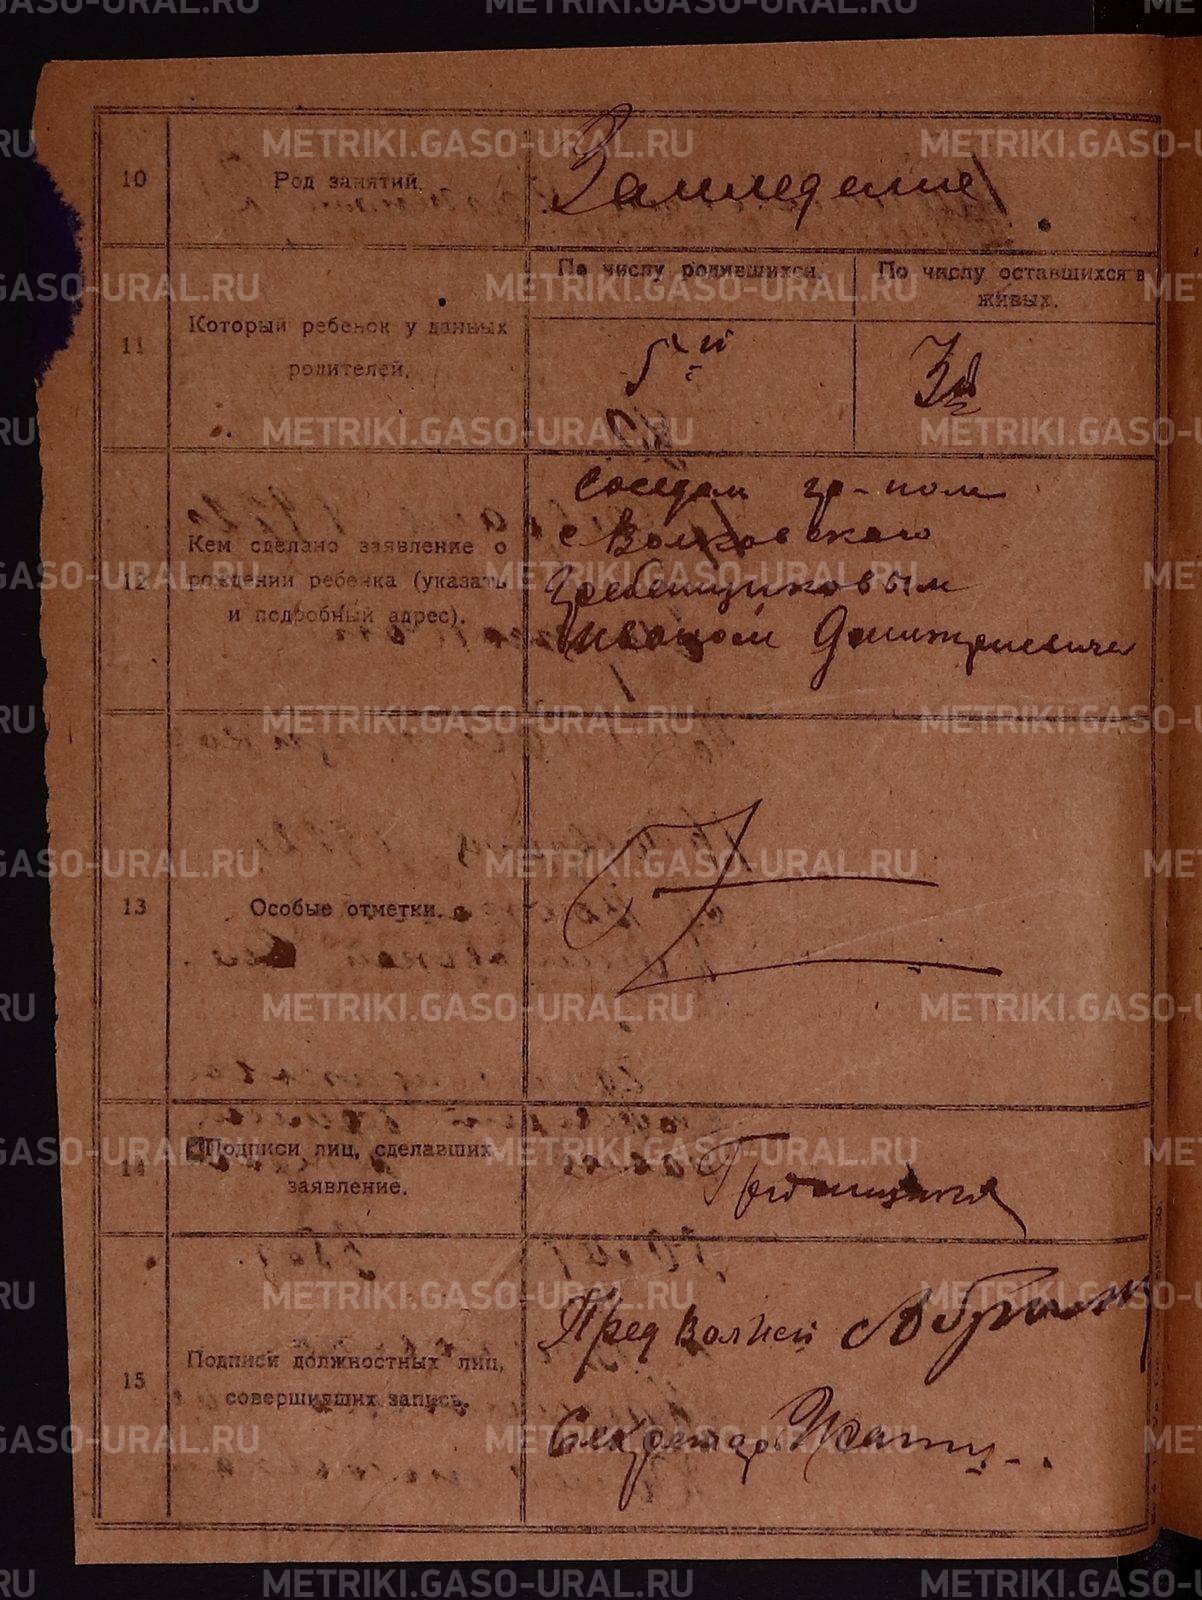 10
Род занятий.
Замледелие
11
Который ребенок у данных
родителей.
По числу родившихся.
5й
По числу оставшихся в
живых.
3й
12
Кем сделано заявление о
рождении ребенка (указать
и подробный адрес).
соседом гр-ном
с Волковскаго
Гребенщиковым
Иваном Дмитриевичем
13
Особые отметки.
14
Подписи лиц, сделавших
заявление.
15
Подписи должностных лиц,
совершивших запись.
Пред
Секретарь
METRIKI.GASO-URAL.RU